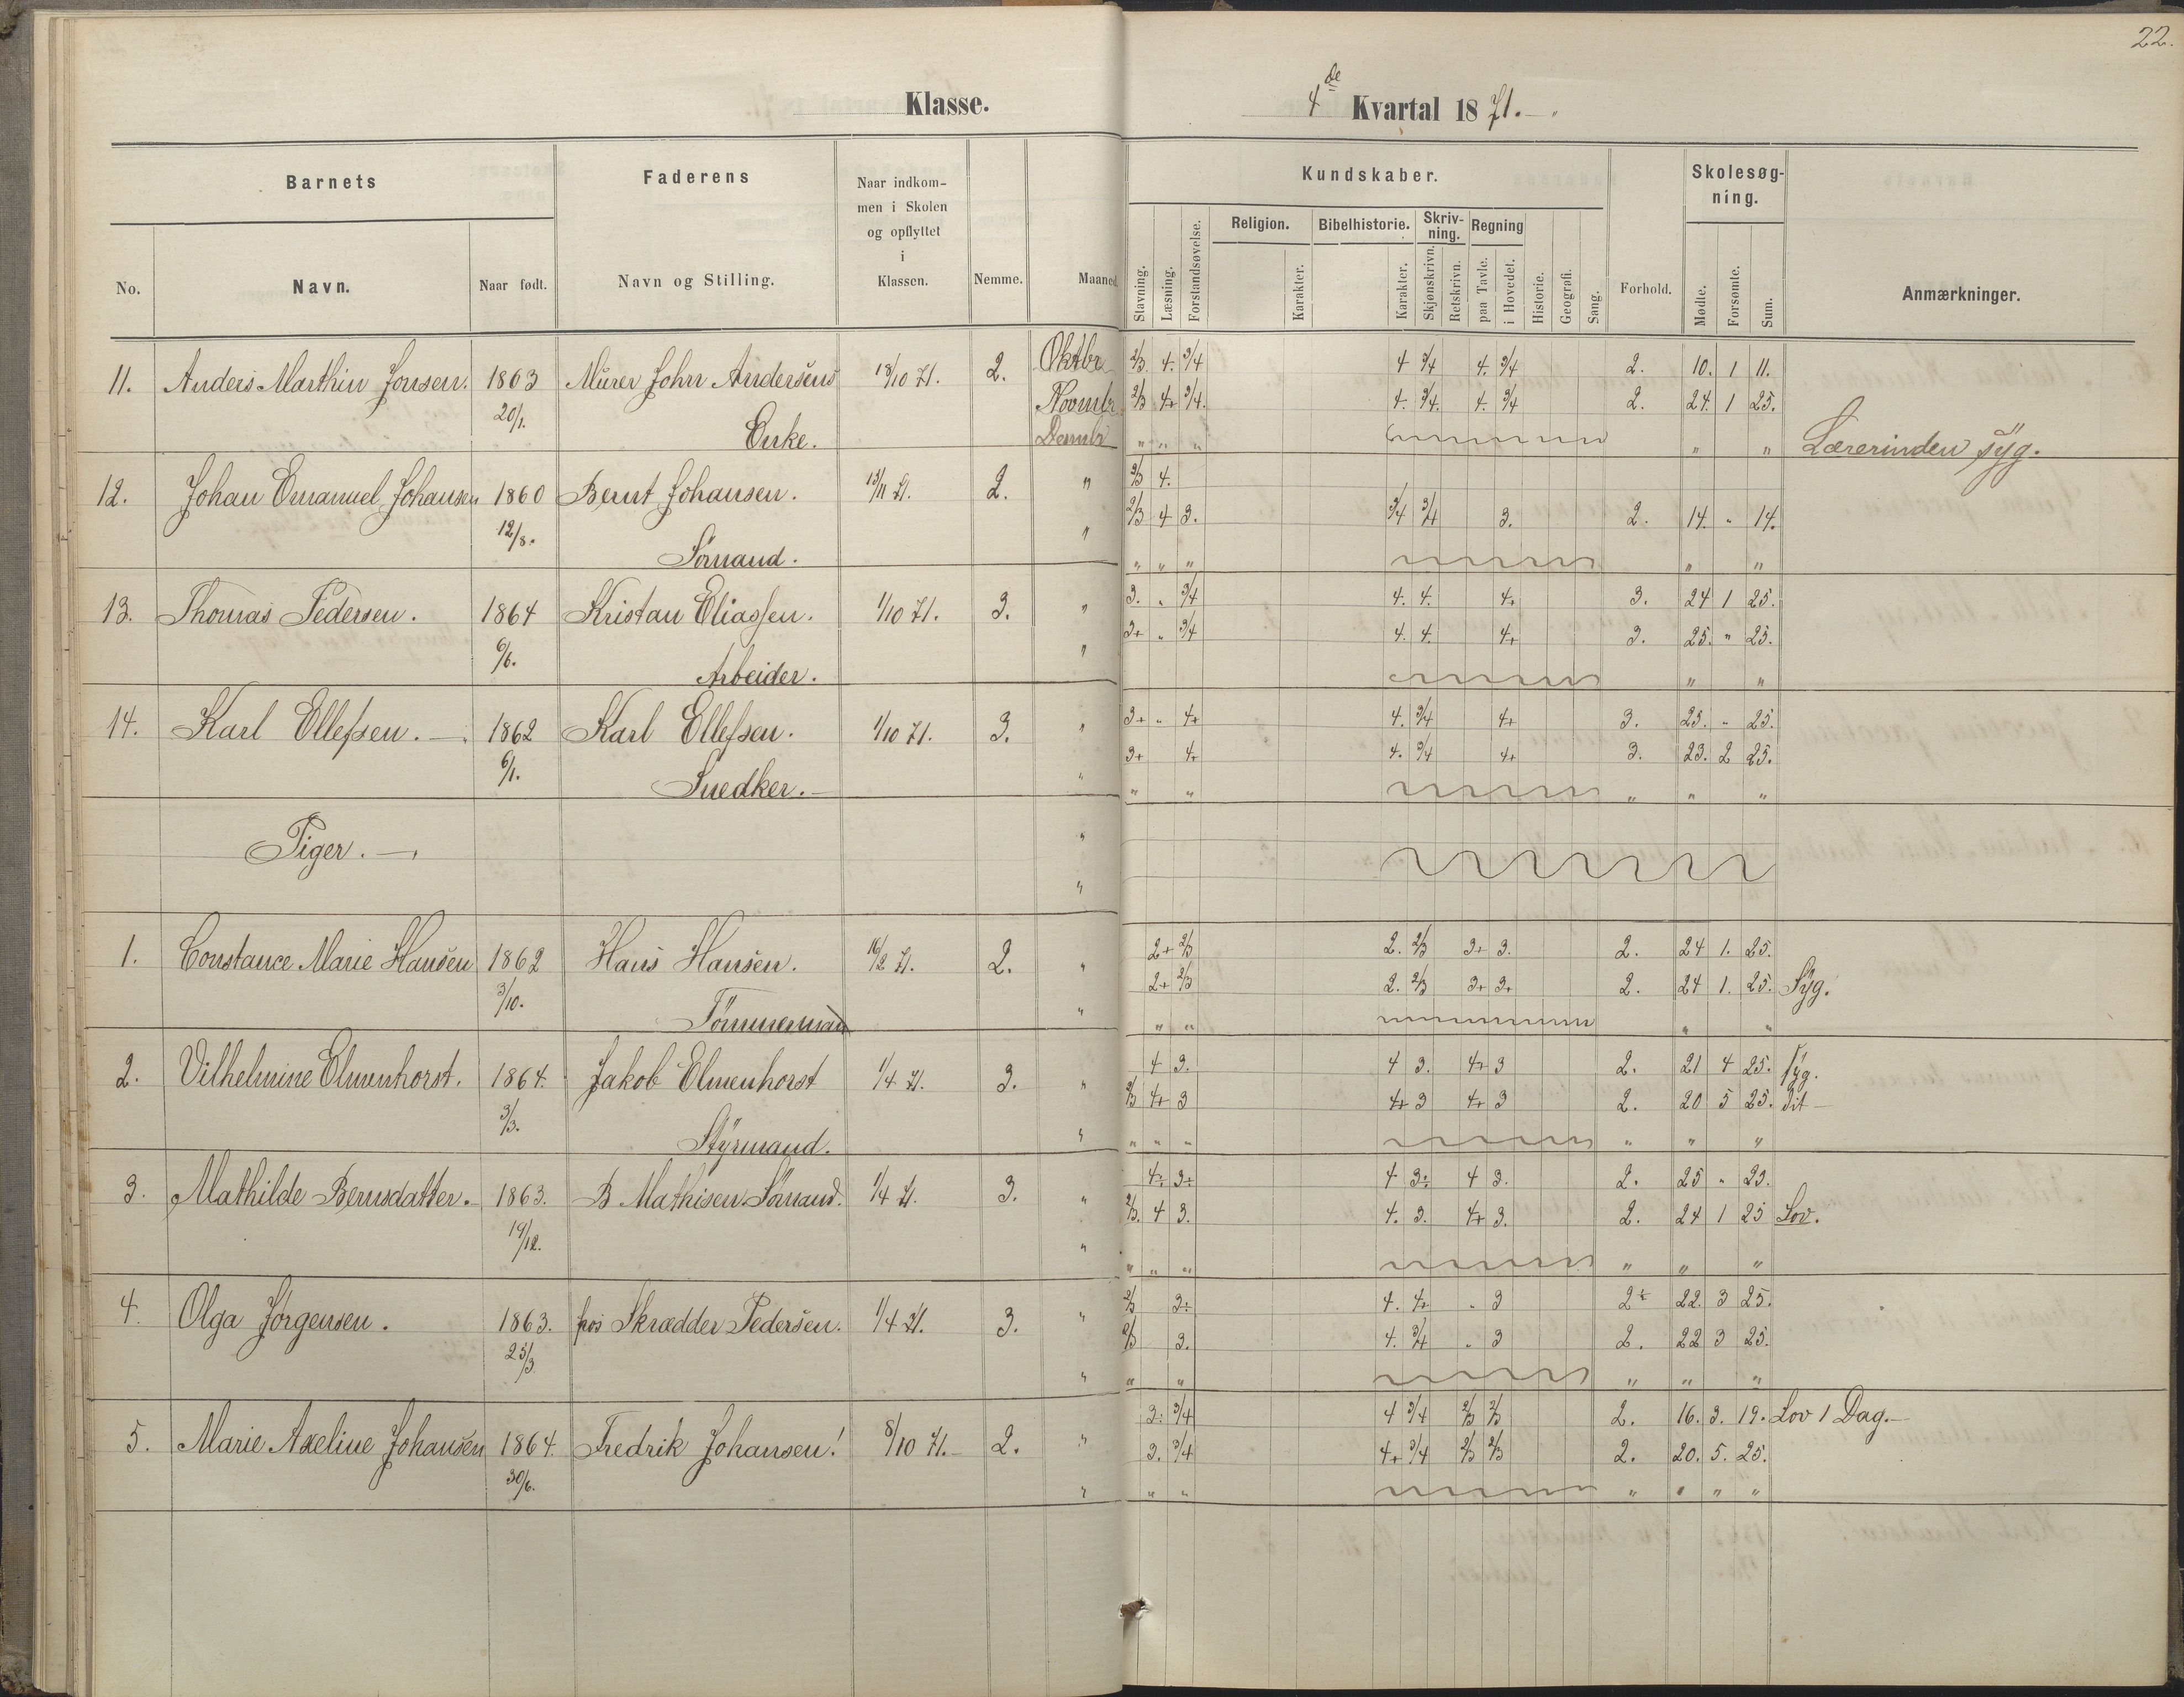 22.
Klasse.
4de Kvartal 1871.
Barnets
Faderens
Naar indkom-
men i Skolen
og opflyttet
i
Klassen.
No.
Navn.
Naar født.
Navn og Stilling.
Nemme.
Maaned
Kundskaber.
Stavning.
Læsning.
Forstandsøvelse.
Religion.
Karakter.
Bibelhistorie.
Karakter.
Skriv-
ning.
Skjønskrivn.
Retskrivn.
Regning
paa Tavle.
i Hovedet.
Historie.
Geografi.
Sang.
Forhold.
Skolesøg-
ning.
Mødte.
Forsømte.
Sum.
Anmærkninger.
11. Anders Marthin Jonsen. 1863 Murer John Andersens 13/10 71. 2. Oktbr 2/3 4. 3/4 4 3/4 4. 3/4 2. 10. 1 11.
20/1. Novmbr 2/3 4+ 3/4. 4. 3/4. 4. 3/4 2. 24. 1 25.
Enke. Dembr " " " " " Lærerinden syg.
12. Johan Emanuel Johansen 1860 Bernt Johansen. 13/11 71. 2. " 2/3 4.
12/8. " 2/3 4 3. 3/4 3/4 3. 2. 14. " 14.
Sömand. " " " " "
13. Thomas Pedersen. 1864 Kristan Eliassen. 1/10 71. 3. " 3. " 3/4 4. 4. 4. 3. 24 1 25.
6/6. " 3+ " 3/4 4. 4. 4+ 3. 25. " 25.
Arbeider. " "
14. Karl Ellefsen. 1862 Karl Ellefsen. 1/10 71. 3. " 3+ " 4+ 4. 3/4 4+ 3. 25. " 25.
6/1. 3+ 4+ 4. 3/4 4+ 3. 23. 2 25.
Snedker. " " " " " "
Piger. "
"
1. Constance Marie Hansen 1862 Hans Hansen. 16/2 71. 2. " 2+ 2/3 2. 2/3 3+ 3. 2. 24 1. 25.
3/10. 2+ 2/3 2. 2/3 3+ 3+ 2. 24 1. 25. Syg.
Tömmermand " " " " "
2. Vilhelmine Elmenhorst. 1864. Jakob Elmenhorst 1/4 71. 3. " 4 3. 4 3. 4+ 3 2. 21 4 25. syg.
3/3. 2/3 4+ 3 4+ 3 4+ 3 2. 20 5 25. dit
Styrmand. " " " " " " "
3. Mathilde Bernsdatter. 1863. B Mathisen Sömand. 1/4 71. 3. " 4÷ 3÷ 4 3÷ 4 3. 2. 25 " 25.
19/12. 2/3. 4 3. 4. 3. 4+ 3. 2. 24 1 25 Lov.
" " " " " " "
4. Olga Jörgensen. 1863. hos Skrædder Pedersen. 1/4 71. 3. " 2/3 3÷ 4. 4+ " 3 2÷ 22. 3 25.
25/3 2/3 3. 4. 3/4 " 3 2. 22 3 25.
" " " " " "
5. Marie Axeline Johansen 1864. Fredrik Johansen! 8/10 71. 2. " 3÷ 3/4 4 3/4 2/3 2/3 2. 16. 3. 19. Lov 1 Dag.
30/6. 3. 3/4 4+ 3/4 2/3 2/3 2. 20. 5. 25.
" " " " " " "